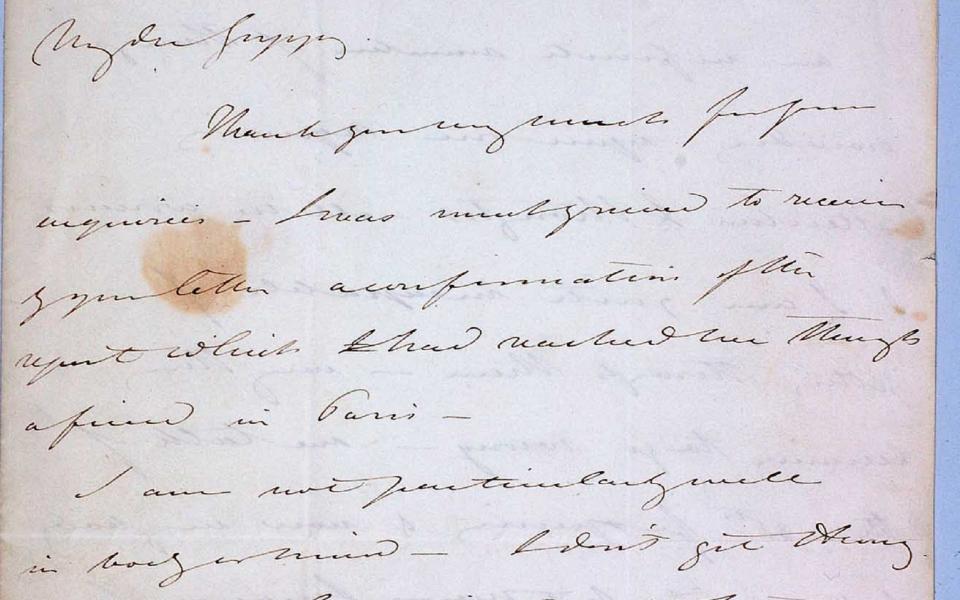 My dear Guppy
Thank you very much for your
enquiries – I was much grieved to receive
by your letter a confirmation of the
report which had reached me through
a friend in Paris –
I am not particularly well
in body or mind – I don't get strong